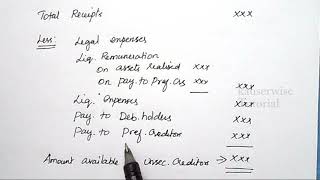 Total Receipts xxx
Less: Legal expenses xxx
Liq. Remuneration
on assets realised xxx
on pay. to Pref. Crs xxx xxx
Liq. Expenses xxx
Pay. to Deb. holders xxx
Pay. to Pref. Creditor xxx
Amount available Unsec. Creditor → xxx
kauserwise
tutorial